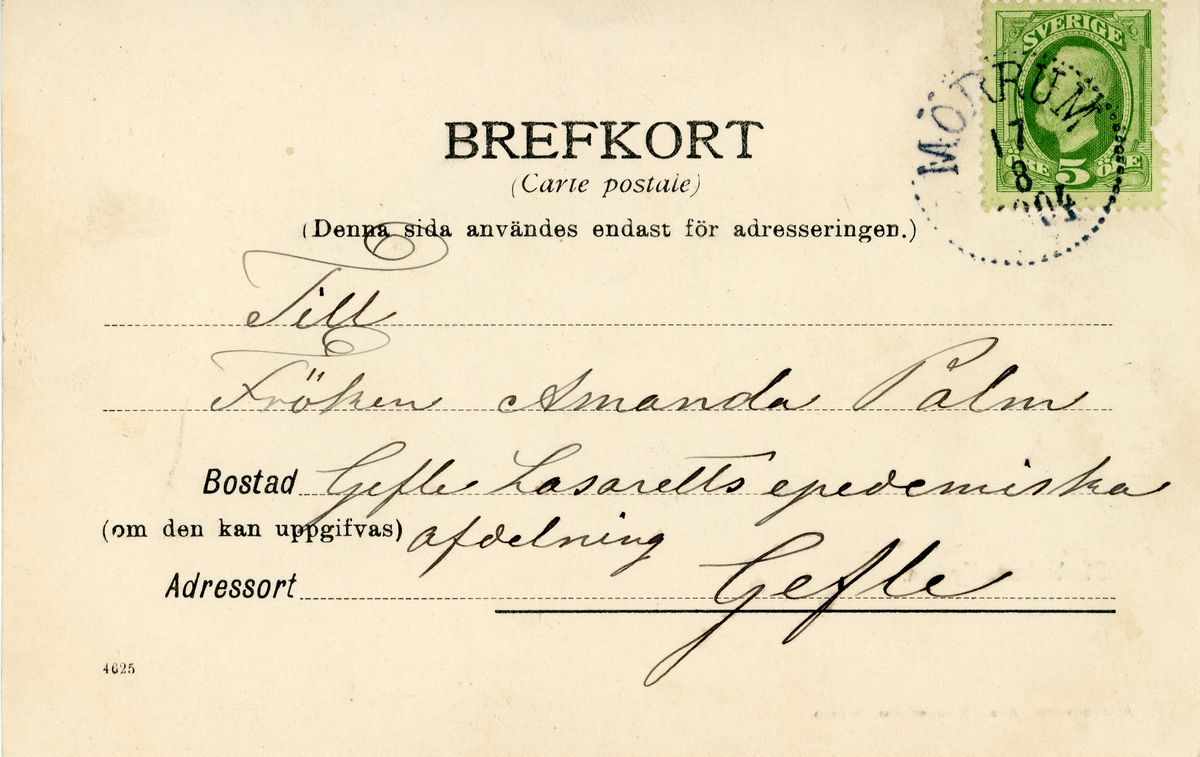 SVERIGE
ÖRE 5 ÖRE
MÖRRUM
17
8
1904
BREFKORT
(Carte postale)
(Denna sida användes endast för adresseringen.)
Till
Fröken Amanda Palm
Bostad Gefle Lasaretts epedemiska
(om den kan uppgifvas) afdelning
Adressort Gefle
4625